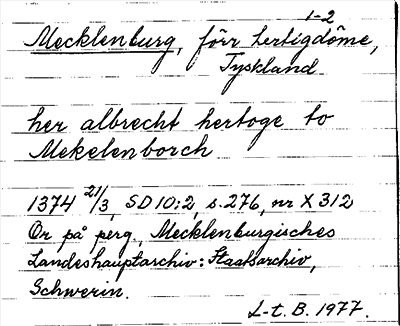 1-2
Mecklenburg, förr hertigdöme,
Tyskland
her albrecht hertoge to
Mekelenborch
1374 21/3, SD 10:2, s. 276, nr X 312
Or på perg, Mecklenburgisches
Landeshauptarchiv: Staatsarchiv,
Schwerin.
L-t. B. 1977.